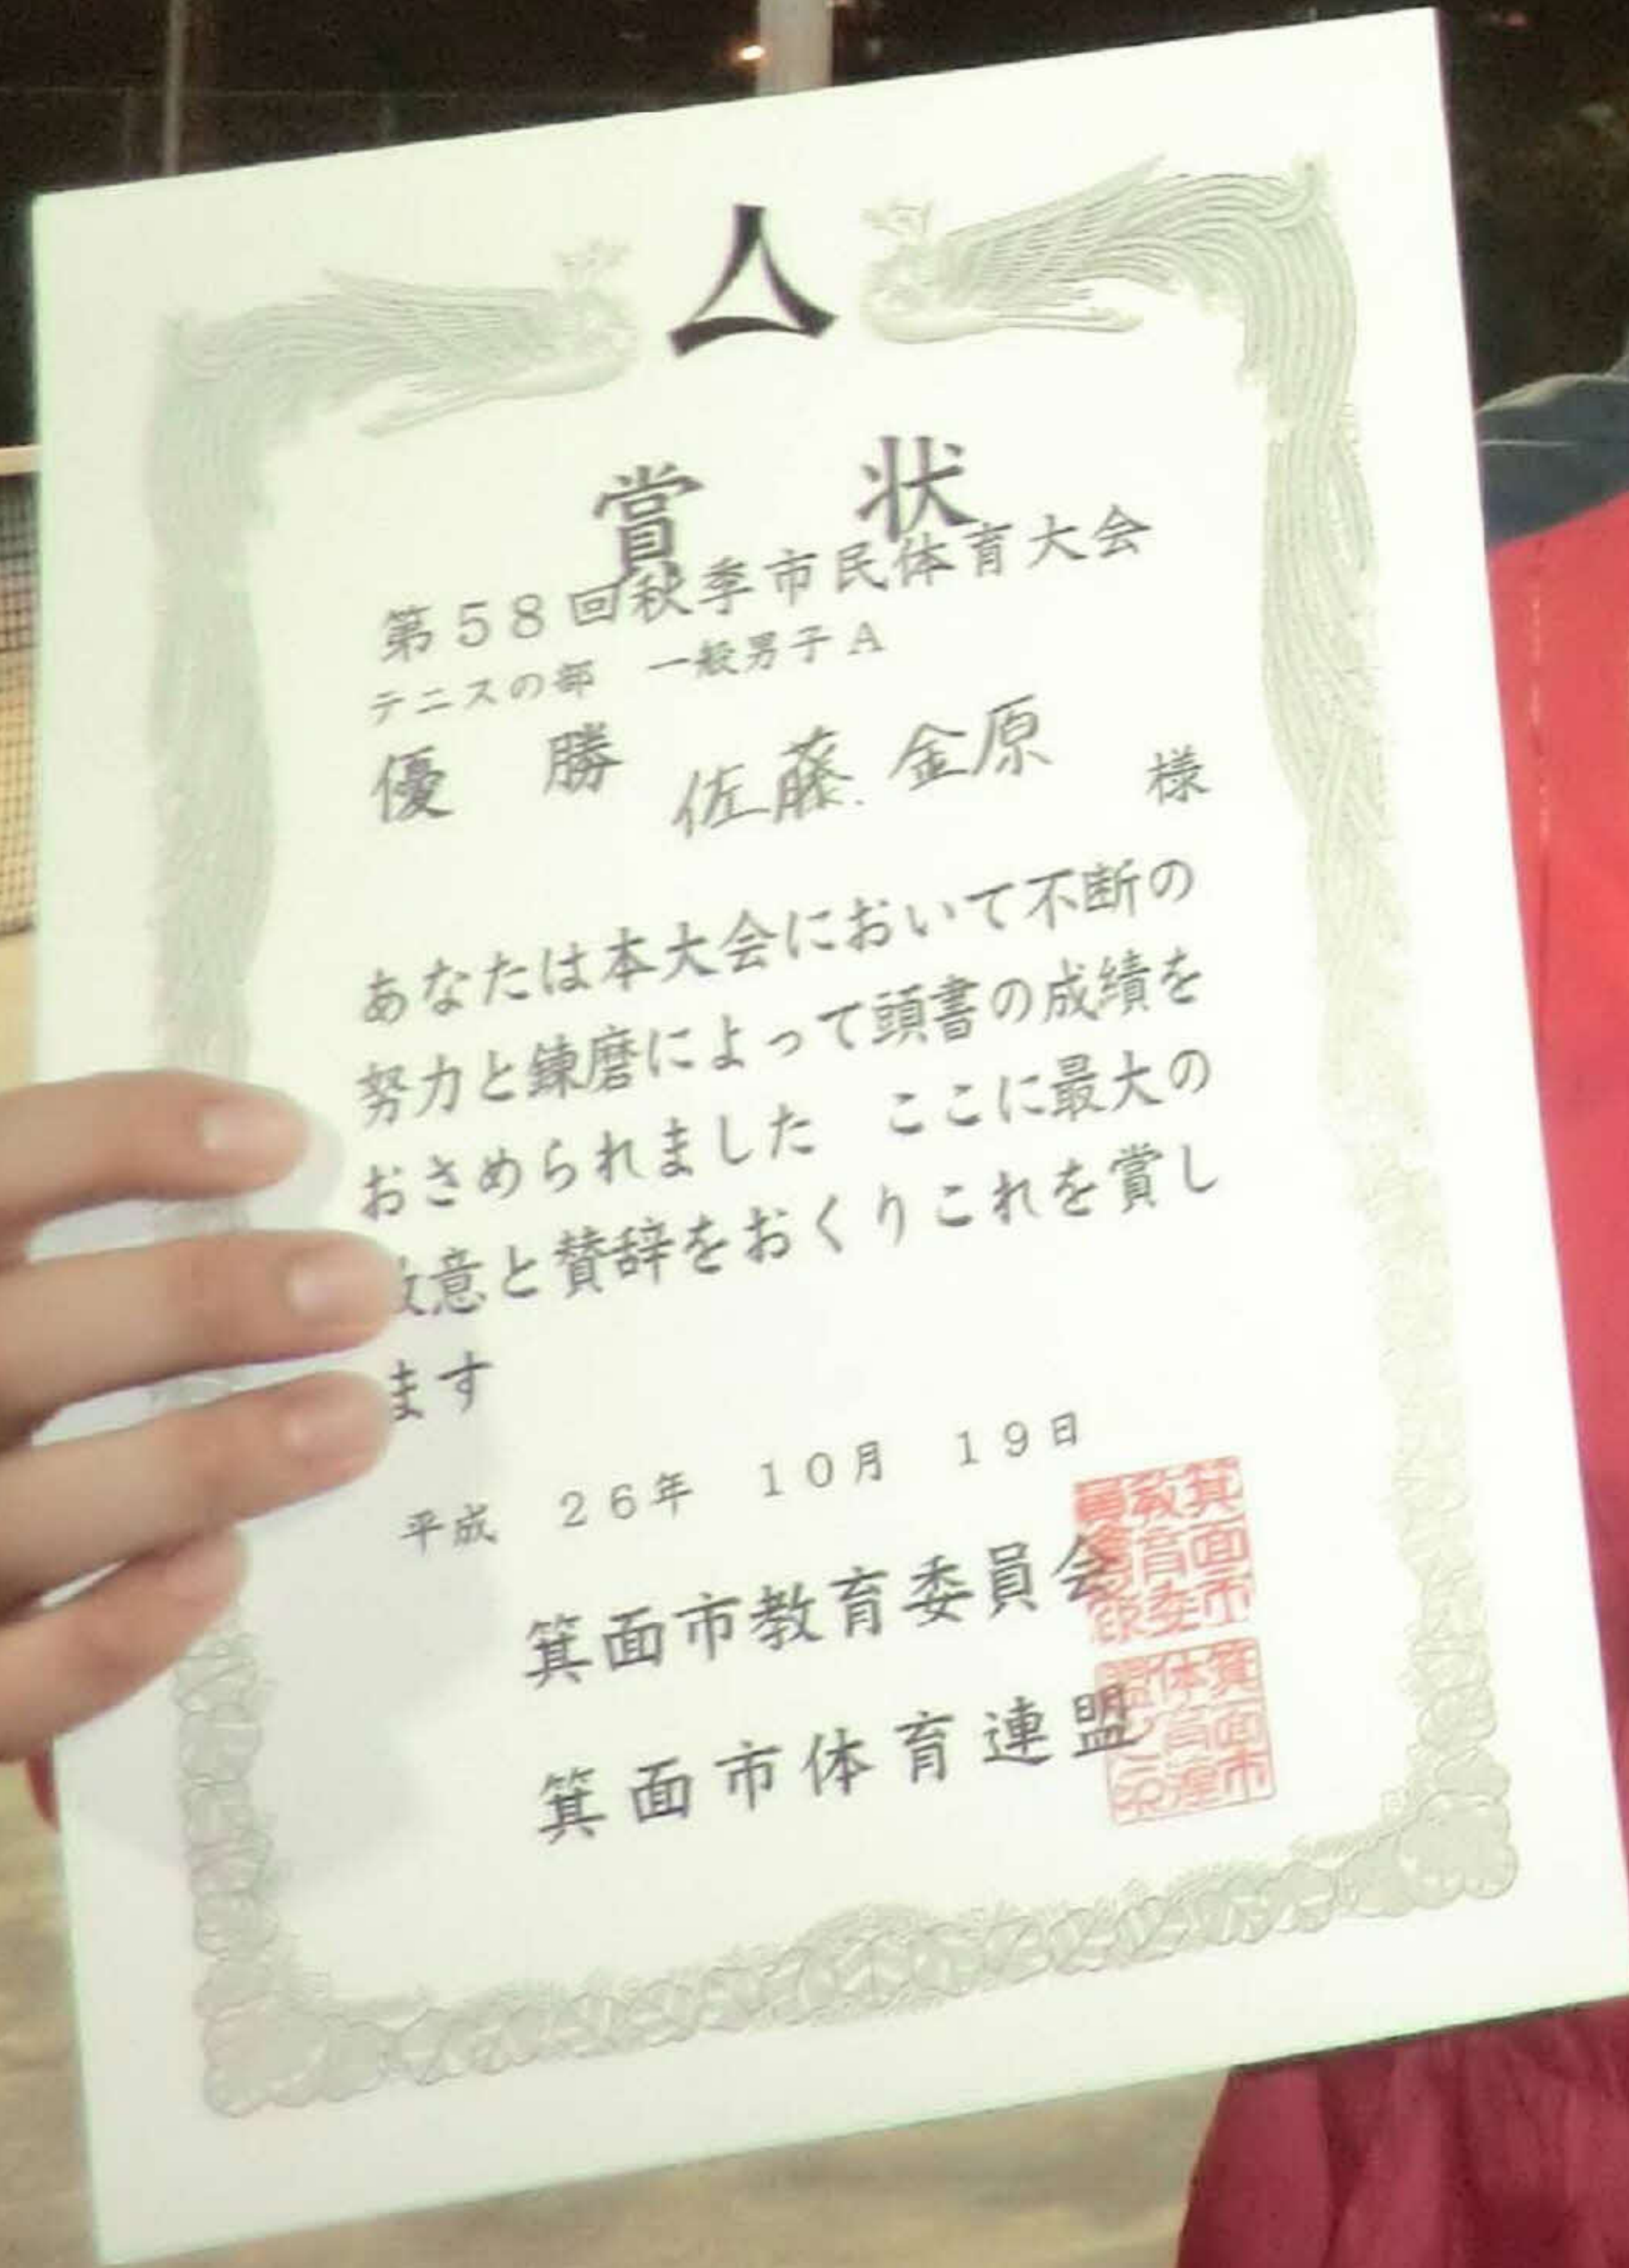 賞状
第58回秋季市民体育大会
テニスの部 一般男子A
優勝 佐藤.金原 様
あなたは本大会において不断の
努力と錬磨によって頭書の成績を
おさめられました ここに最大の
意と賛辞をおくりこれを賞し
ます
平成 26年 10月 19日
箕面市教育委員会
箕面市体育連盟